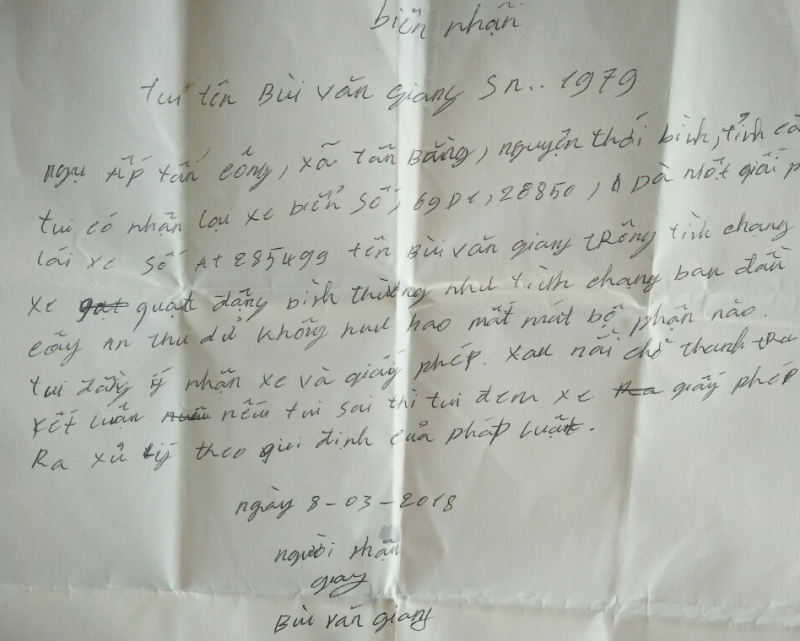 biên nhận
tui tên Bùi văn giang Sn.. 1979
ngụ ấp tấn cống, xã tấn Bằng, nguyện thới bình, tỉnh cà
tui có nhận lại xe biển số, 69D1, 28850, Dà một giấy p
lái xe số At 285499 tên Bùi văn giang tRông tình chang
xe quạt động bình thường như tình chang ban đầu
cây An thu dử không hư hao mất mát bộ phận nào.
tui đồng ý nhận xe và giấy phép. xau nài chờ thanh tRa
kết luận nếu tui sai thì tui đem xe giấy phép
Ra xử lý theo qui định của pháp luật.
ngày 8-03-2018
người nhận
giang
Bùi văn giang